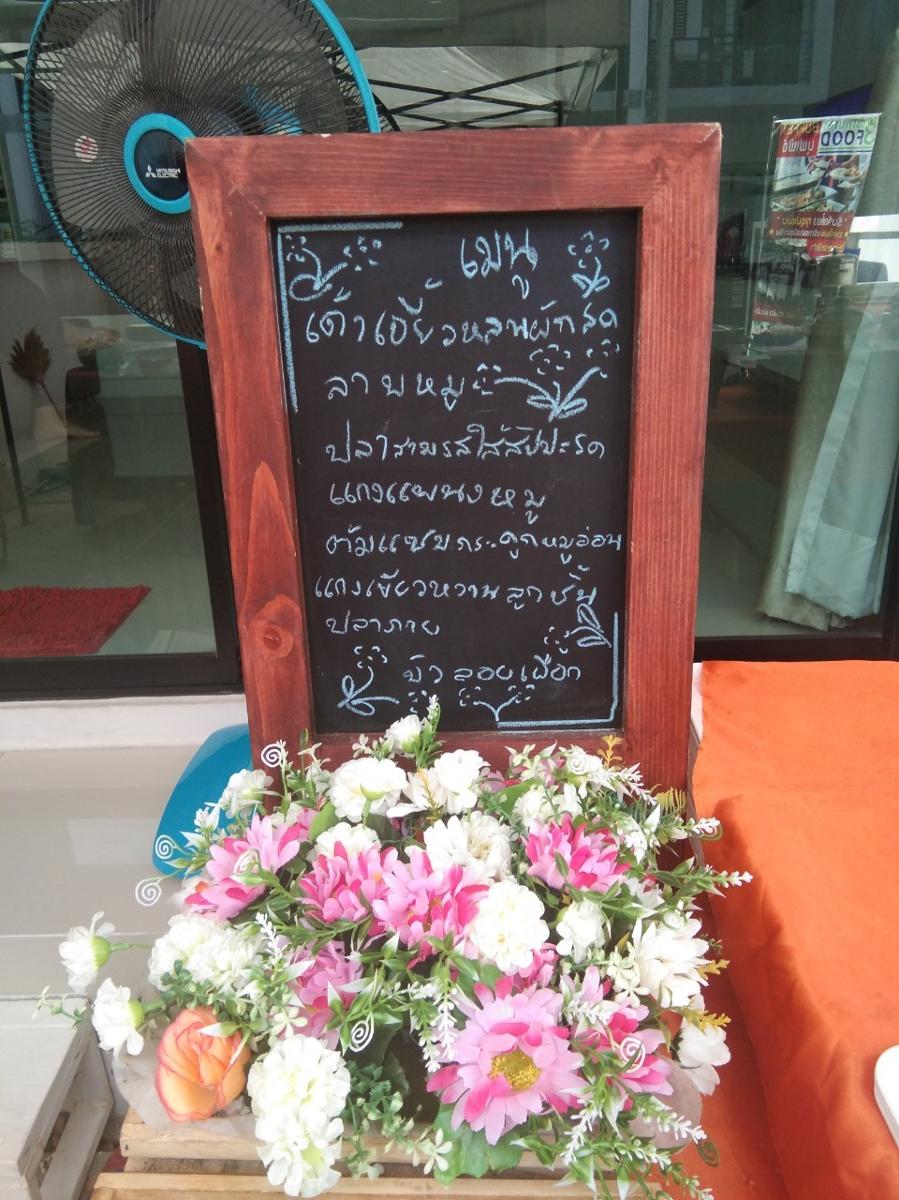 เมนู
เต้าเจี้ยวหลนผักสด
ลาบหมู
ปลาสามรสใส่สัปปะรด
แกงแพนงหมู
ต้มแซบกระดูกหมูอ่อน
แกงเขียวหวานลูกชิ้น
ปลากราย
บัวลอยเผือก
MITSUBISHI
ELECTRIC
FOOD